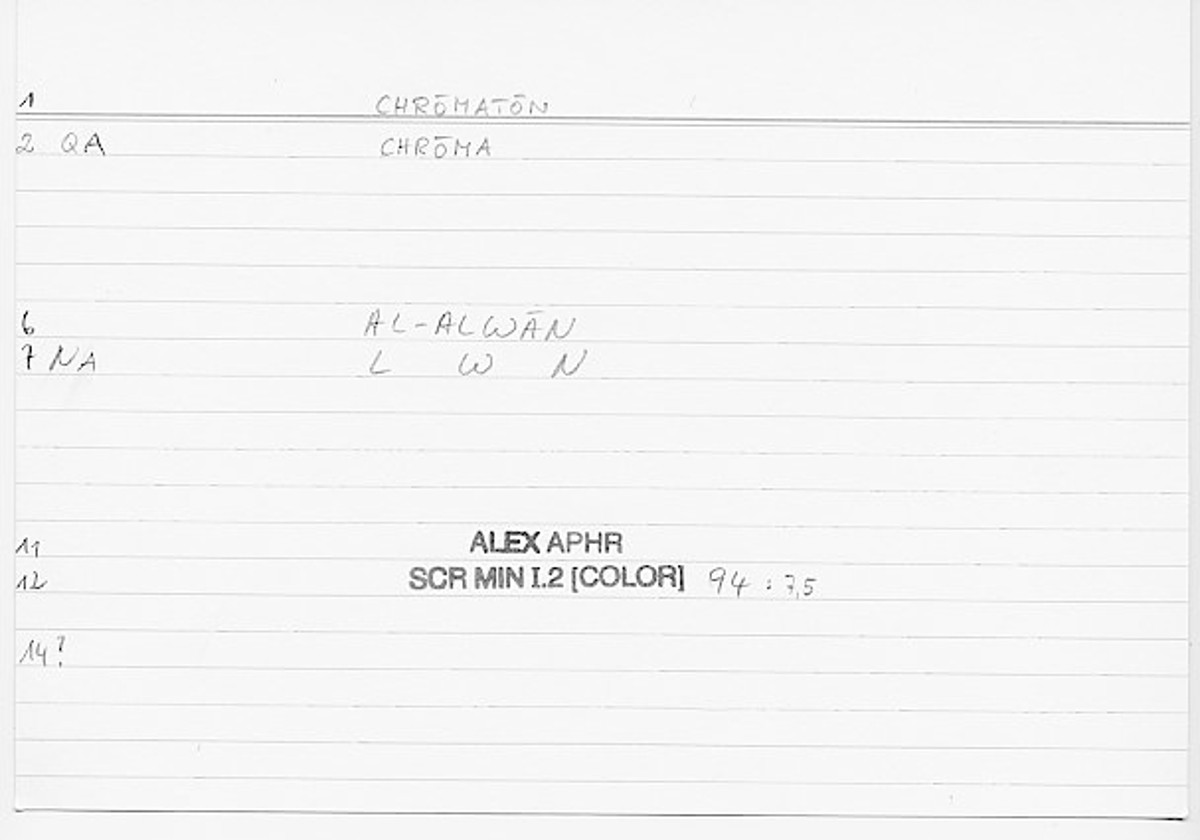 1 CHRŌMATŌN
2 QA CHRŌMA
6 AL-ALWĀN
7 NA L W N
11 ALEX APHR
12 SCR MIN I.2 [COLOR] 94 : 7,5
14?